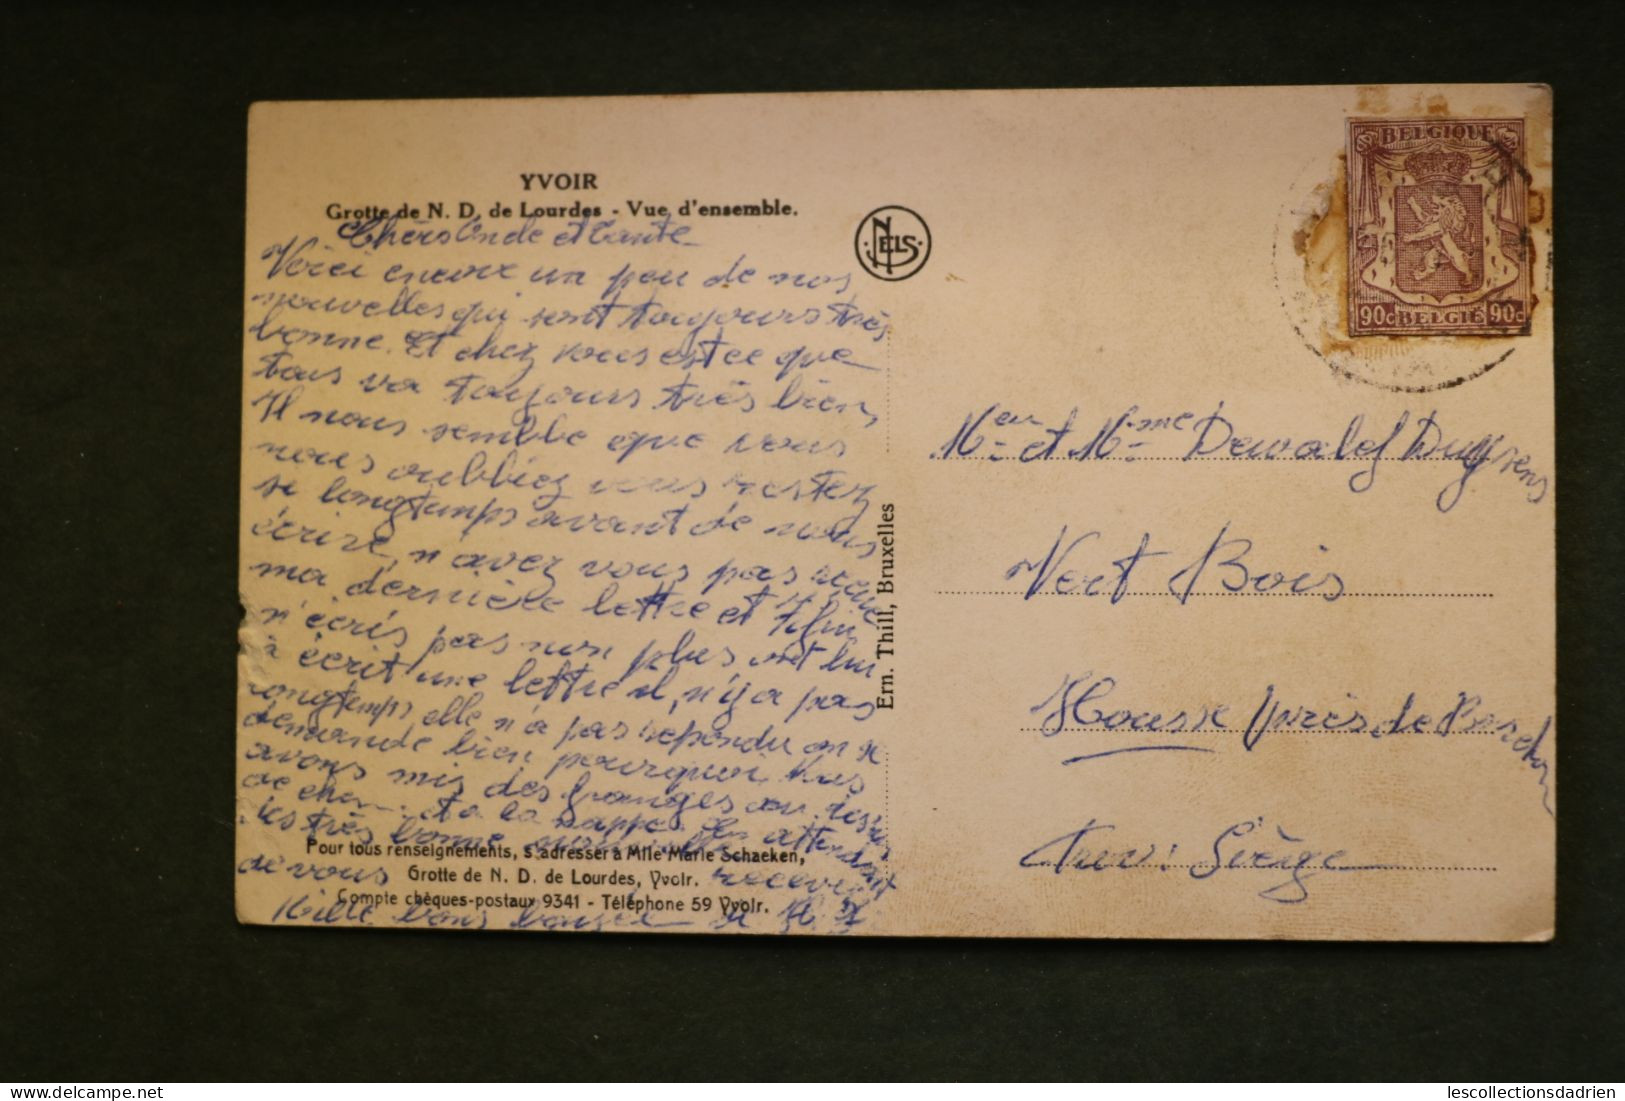 YVOIR
Grotte de N. D. de Lourdes - Vue d'ensemble.
NELS
Chers Oncle et Tante
Voici encore un peu de nos
nouvelles qui sont toujours très
bonne. Et chez vous est ce que
tous va toujours très bien,
Il nous semble que vous
nous oubbliez vous restez
si longtemps avant de nous
écrire, n'avez vous pas reçue
ma dernière lettre et
n'écris pas non plus ont lui
à écrit une lettre il, n'y a pas
longtemps elle n'a pas repondu on se
demande bien pourquoi Nous
avons mis des franges au
de et a la nappe. En attendant
très bonne
de vous recevoir
Mille bons
Pour tous renseignements, s'adresser à Mlle Marie Schaeken,
Grotte de N. D. de Lourdes, Yvoir.
Compte chèques-postaux 9341 - Téléphone 59 Yvoir.
Ern. Thill, Bruxelles
BELGIQUE
90c BELGIË 90c
Meur et Mme Dewalef Duyssens
Vert Bois
Housse près de Barchon
Prov: Liège
lescollectionsdadrien